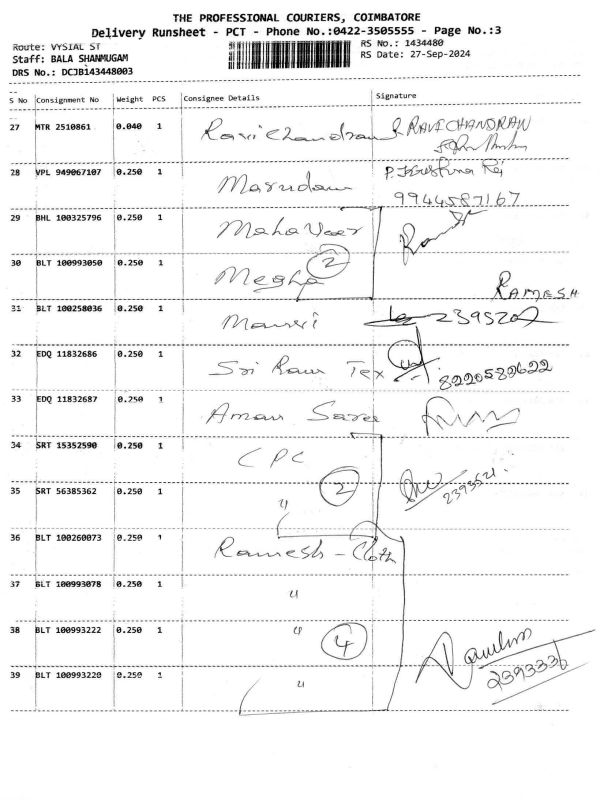 THE PROFESSIONAL COURIERS, COIMBATORE
Delivery Runsheet - PCT - Phone No.:0422-3505555 - Page No.:3
Route: VYSIAL ST
RS No.: 1434480
Staff: BALA SHANMUGAM
RS Date: 27-Sep-2024
DRS No.: DCJB143448003
S No Consignment No Weight PCS Consignee Details Signature
27 MTR 2510861 0.040 1 Ravichandran R RAVICHANDRAN
28 VPL 949067107 0.250 1 Marudam P. Krishna Raj
9944587167
29 BHL 100325796 0.250 1 Mahaveer
30 BLT 100993050 0.250 1 Megha 2 RAMESH
31 BLT 100258036 0.250 1 2395207
32 EDQ 11832686 0.250 1 Sri Ram Tex 8220582622
33 EDQ 11832687 0.250 1 Aman Saree
34 SRT 15352590 0.250 1 CPC
35 SRT 56385362 0.250 1 " 2 2393521
36 BLT 100260073 0.250 1 Ramesh - Cloth
37 BLT 100993078 0.250 1 "
38 BLT 100993222 0.250 1 " 4
39 BLT 100993220 0.250 1 " 2393336